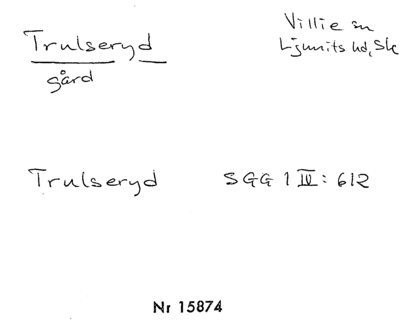 Trulseryd
gård
Villie sn
Ljunits hd, Sk
Trulseryd SGG 1 IV: 612
Nr 15874